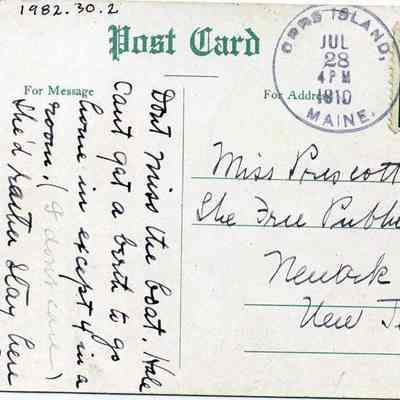 1982.30.2
Post Card
ORRS ISLAND,
JUL
28
4 PM
1910
MAINE.
For Message
For Address
Dont miss the boat. Hale
Cant get a berth to go
home in except 4 in a
room. (I dont care)
She'd rather stay here
Miss Prescott
The Free Public
Newark
New J